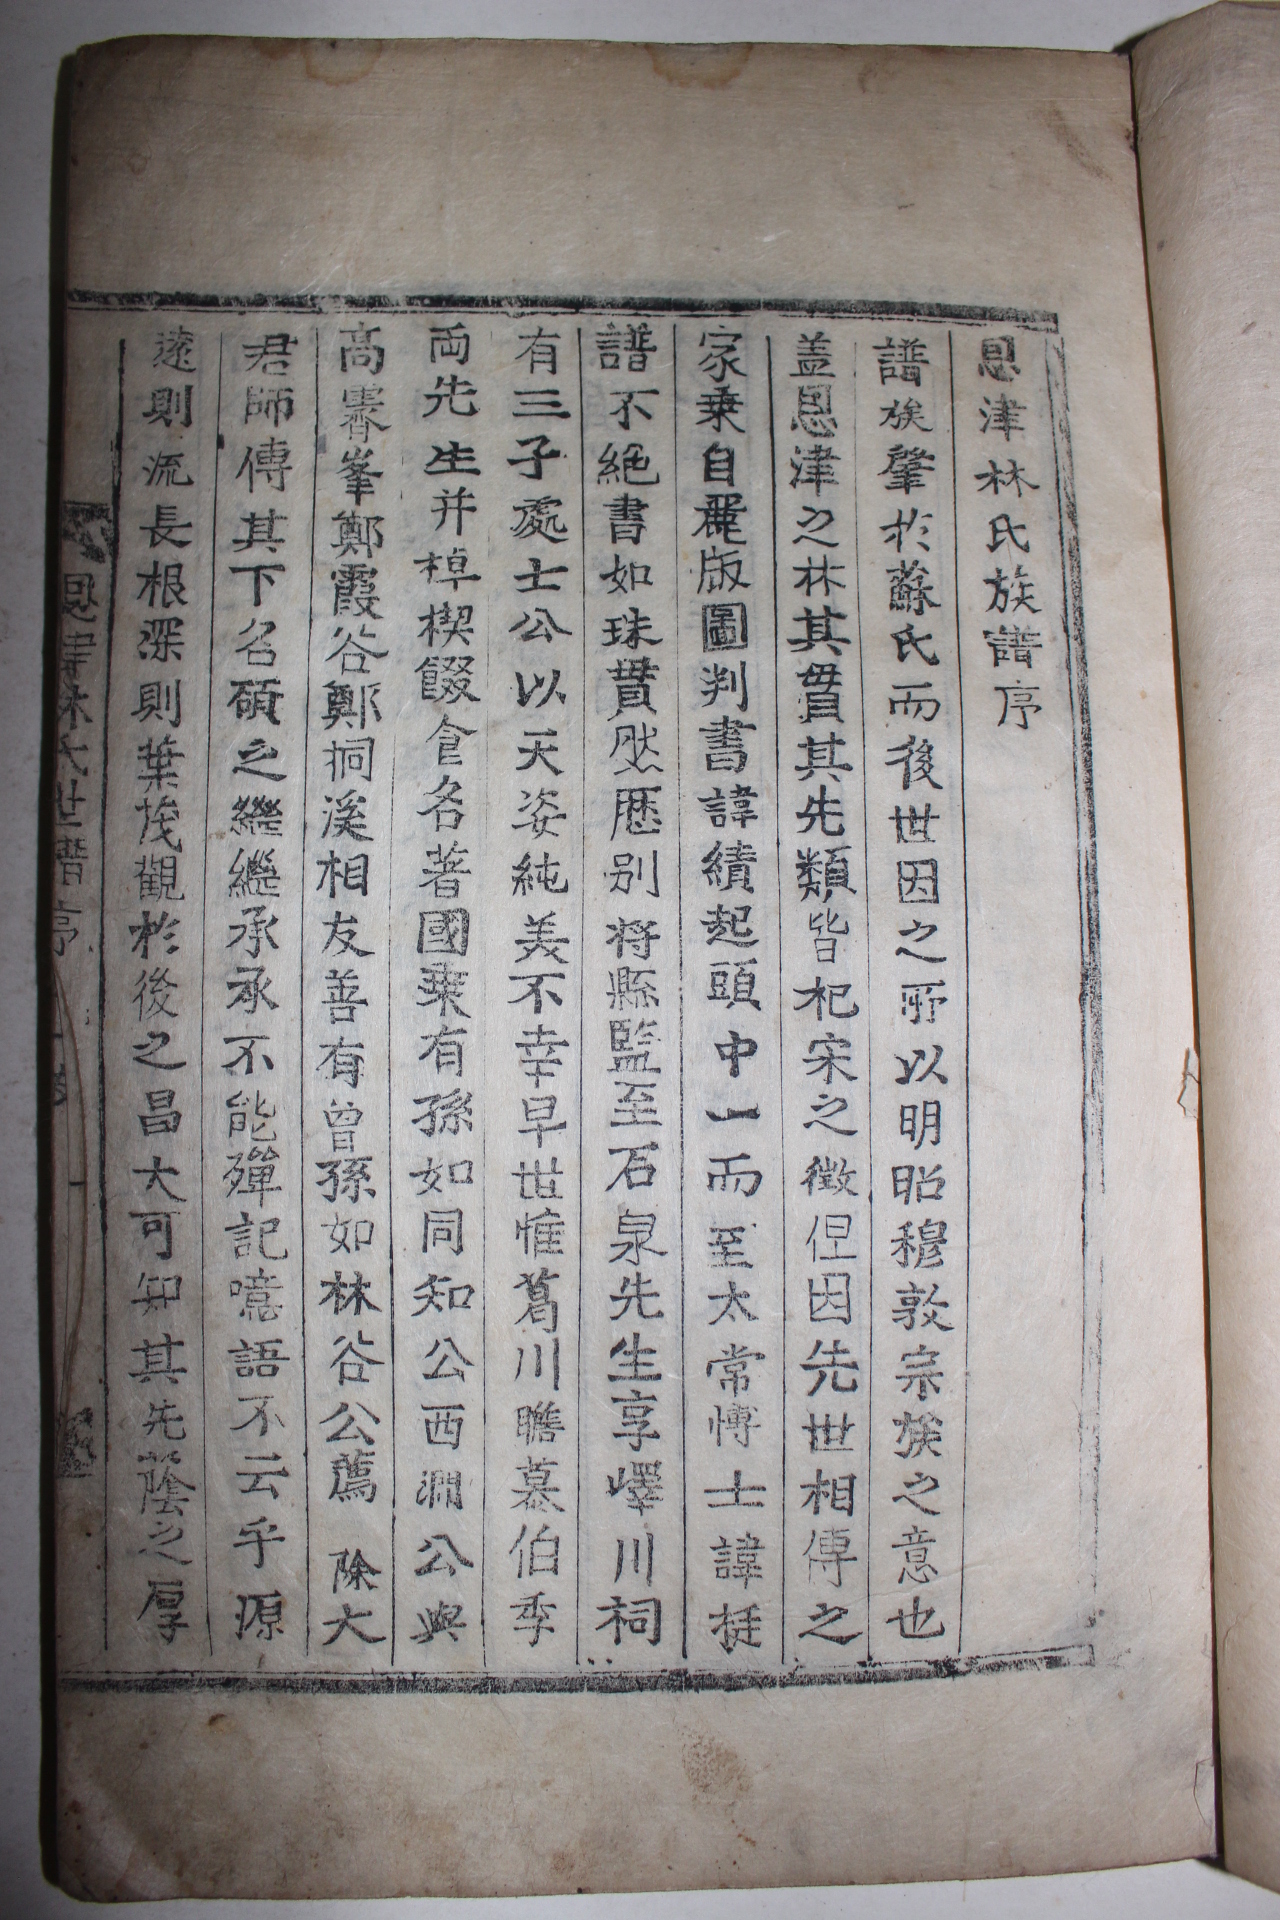 恩津林氏族譜序
譜族肇於蘇氏而後世因之所以明昭穆敦宗族之意也
盖恩津之林其貫其先類皆杞宋之徵但因先世相傳之
家乗自麗版圖判書諱績起頭中一而至太常愽士諱挺
譜不絶書如珠貫然歷别将縣監至石泉先生享嶧川祠
有三子處士公以天姿純美不幸早世惟葛川瞻慕伯季
両先生并棹楔餟食名著國乗有孫如同知公西澗公與
高霽峯鄭霞谷鄭桐溪相友善有曾孫如林谷公薦除大
君師傳其下名碩之繼繼承承不能殫記噫語不云乎源
遠則流長根深則葉茂觀於後之昌大可知其先蔭之厚
恩津林氏世譜序